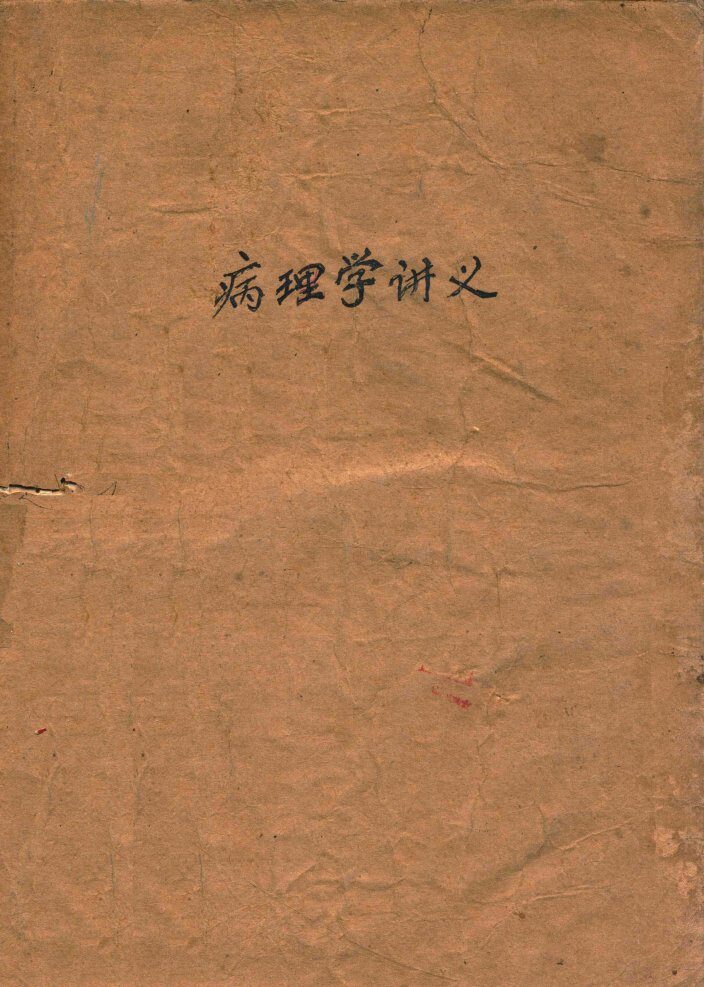 病理学讲义